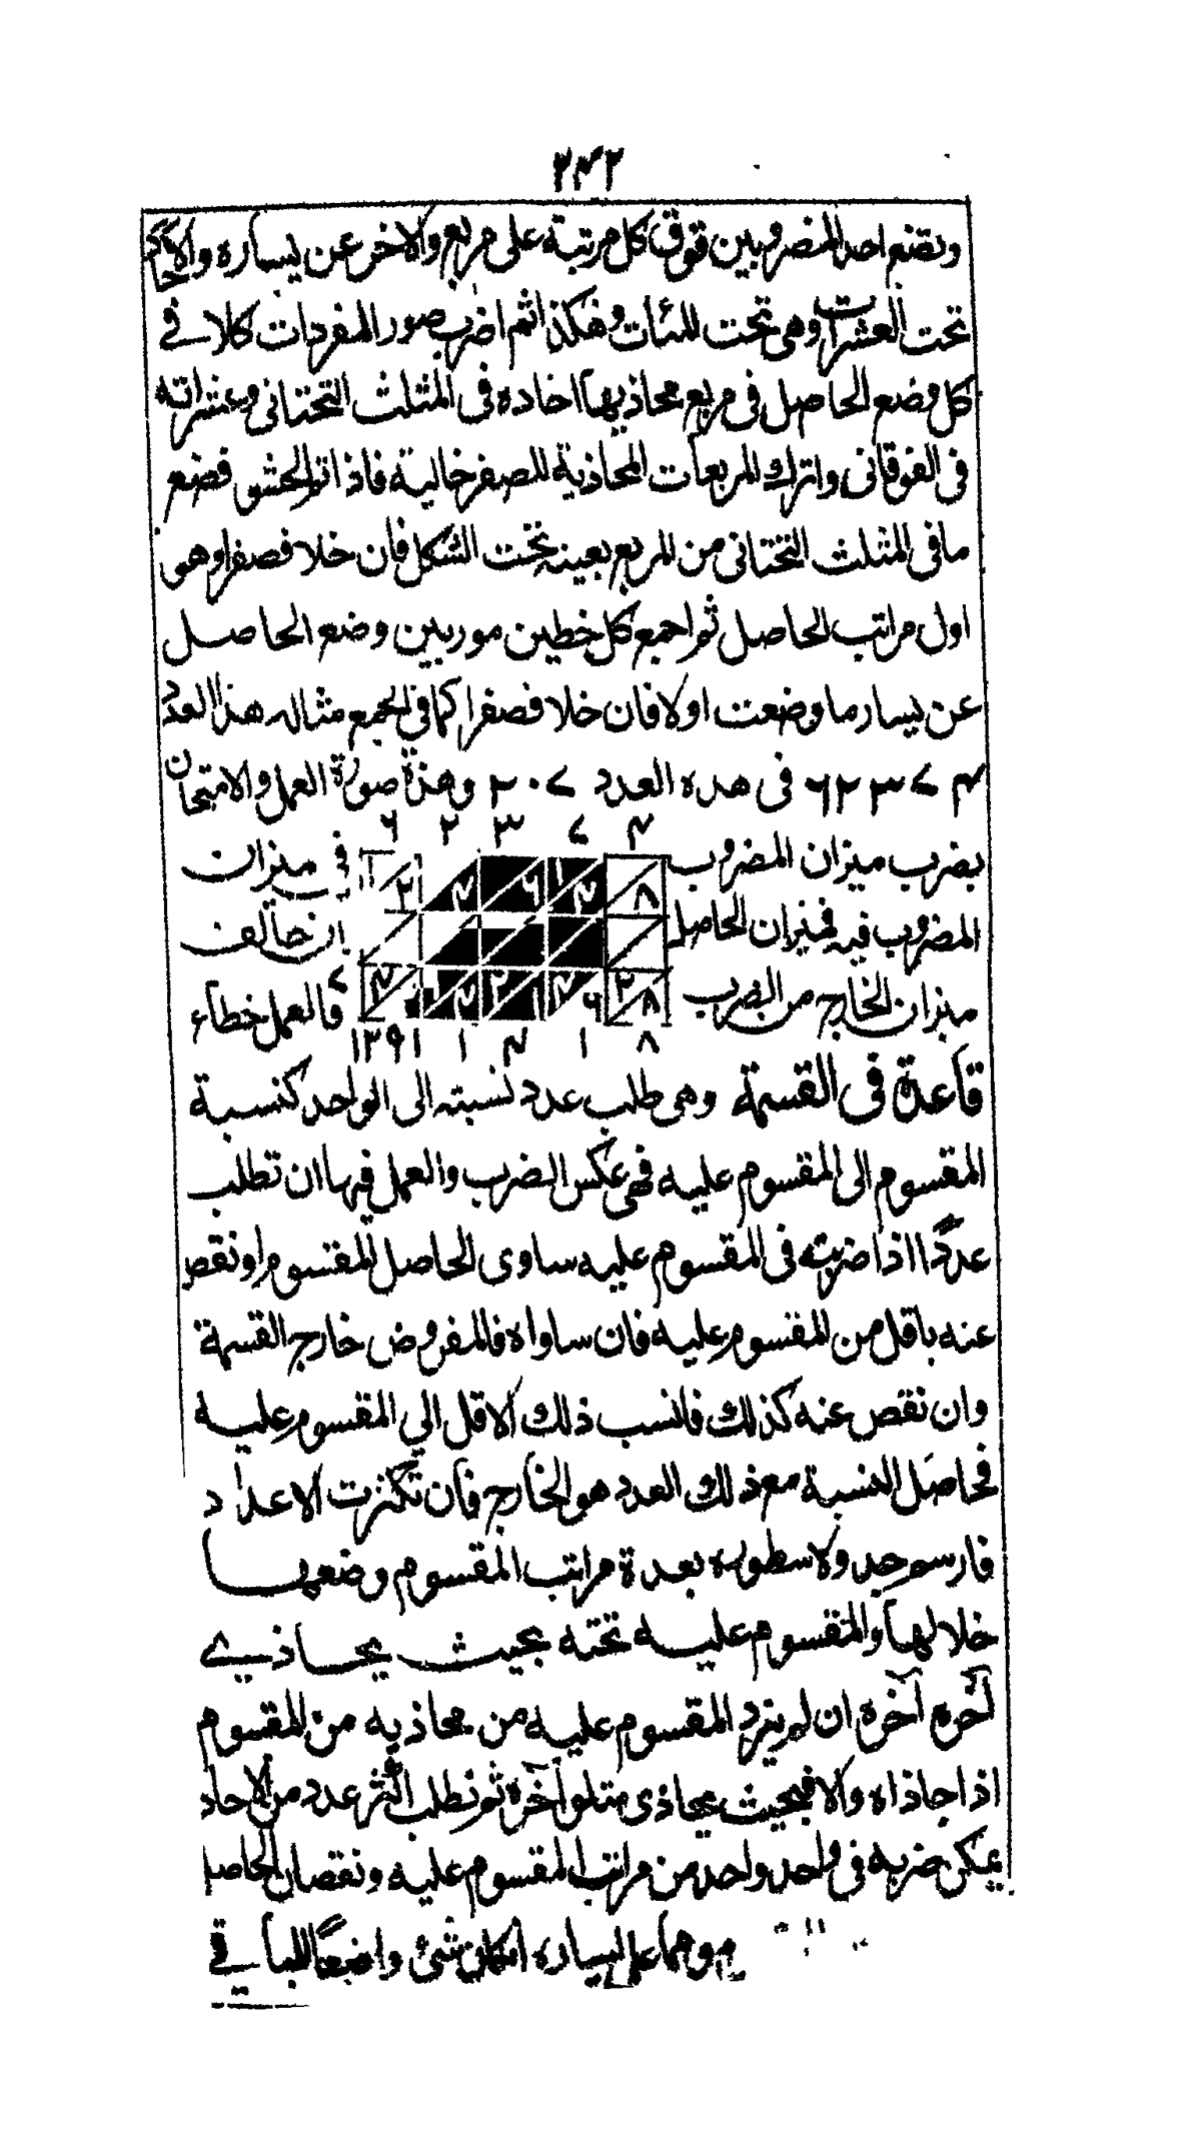 ٢٤٢
وتضع احد المضروبين فوق كل مرتبة على مربع والاخر عن يساره والآحاد
تحت العشرات وهى تحت المئات وهكذا ثم اضرب صور المفردات كلا فے
كل وضع الحاصل فى مربع محاذيهما احاده فى المثلث التحتانى وعشراته
فى الفوقانى واترك المربعات المحاذية للصفر خالية فاذا تم الحشو فضع
ما فى المثلث التحتانى من المربع بعينه تحت الشكل فان خلا فصفرا وهو
اول مراتب الحاصل ثم اجمع كل خطين موربين وضع الحاصل
عن يسار ما وضعت اولا فان خلا فصفرا كما فى الجمع مثاله هذا العدد
٦٢٣٧٤ فى هده العدد ٢٠٧ وهذة صورة العمل والامتحان
٦ ٢ ٣ ٧ ٤
بضرب ميزان المضروب فى ميزان
المضروب فيه فميزان الحاصل ان خالف
ميزان الخارج من الضرب فالعمل خطاء
١٢٩١ ١ ٤ ١ ٨
قاعدة فى القسمة وهى طلب عدد نسبته الى الواحد كنسبة
المقسوم الى المقسوم عليه فهى عكس الضرب والعمل فيها ان تطلب
عددًا اذا ضربته فى المقسوم عليه ساوى الحاصل المقسوم او نقص
عنه باقل من المقسوم عليه فان ساواه فالمفروض خارج القسمة
وان نقص عنه كذلك فانسب ذلك الاقل الي المقسوم عليه
فحاصل النسبة مع ذلك العدد هو الخارج فان تكثرت الاعداد
فارسم جدولا سطوره بعدة مراتب المقسوم وضعها
خلالها والمقسوم عليه تحته بحيث يحاذيے
آخره آخره ان لم يزد المقسوم عليه من محاذيه من المقسوم
اذا حاذاه والا فبحيث يحاذى متلو آخره ثم تطلب اكثر عدد من الآحاد
يمكن ضربه فى واحد واحد من مراتب المقسوم عليه ونقصان الحاصل
على يساره ان كان شئ واضعًا للباقے